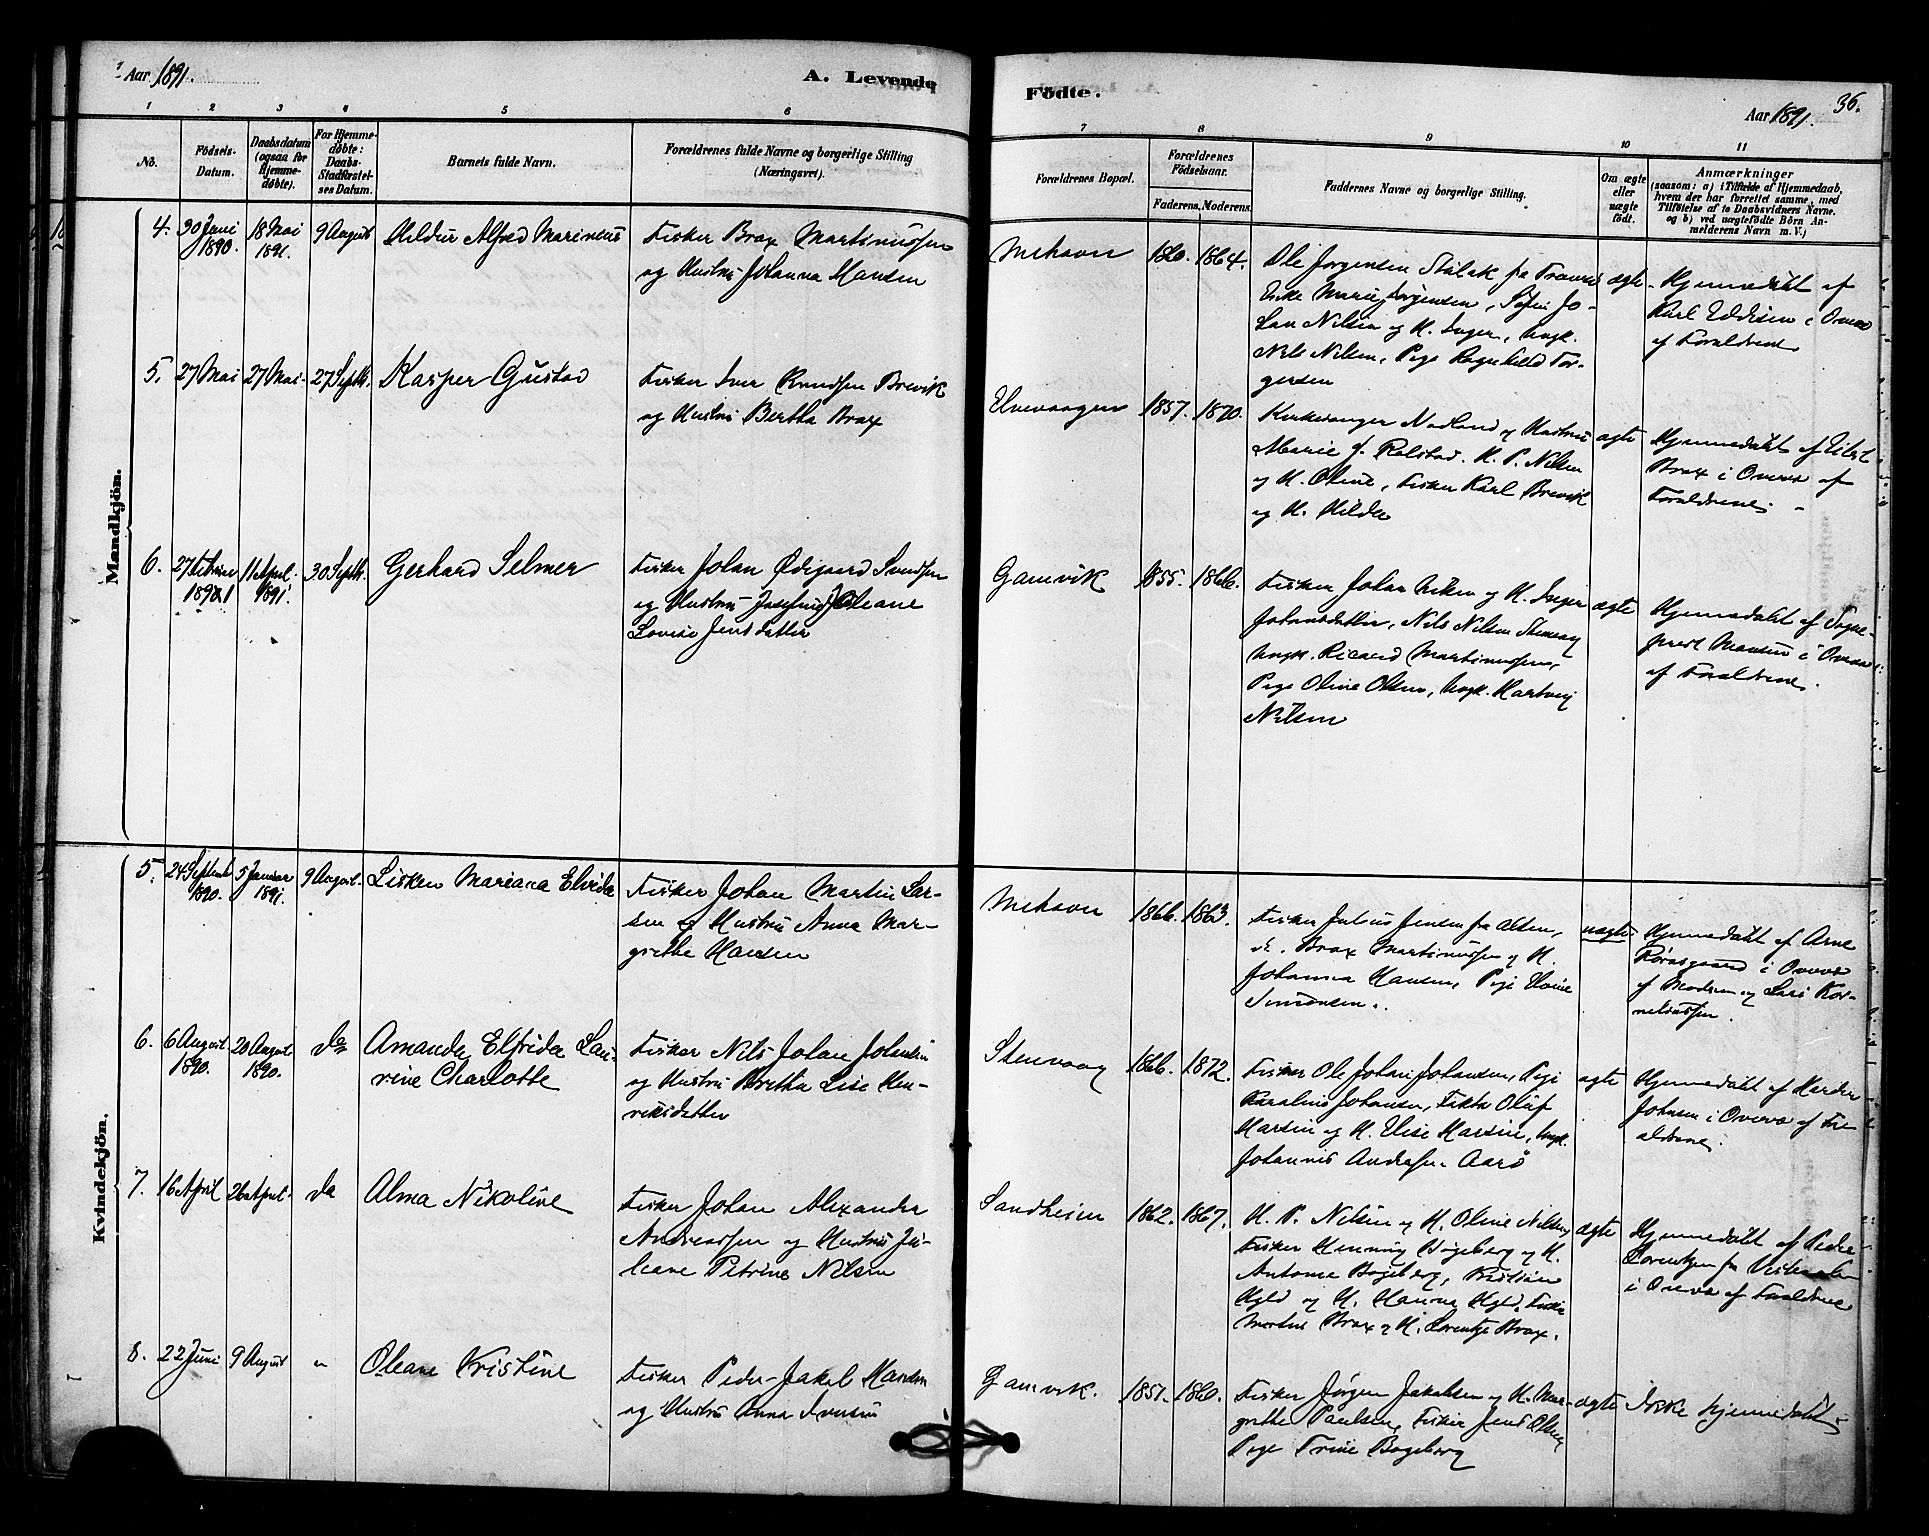 Aar 1891.
A. Levende
Födte.
Aar 1891.
36.
1
2
3
4
5
6
7
8
9
10
11
No.
Födsels-
Datum.
Daabsdatum
(ogsaa for
Hjemme-
döbte).
For Hjemme-
døbte:
Daabs-
Stadfæstel-
ses Datum.
Barnets fulde Navn.
Forældrenes fulde Navne og borgerlige Stilling
(Næringsvei).
Forældrenes Bopæl.
Forældrenes
Födselsaar.
Faderens. Moderens.
Faddernes Navne og borgerlige Stilling.
Om ægte
eller
uægte
födt.
Anmærkninger
(saasom: a) i Tilfælde af Hjemmedaab,
hvem der har forrettet samme, med
Tilföielse af to Daabsvidners Navne.
og b) ved uægtefödte Börn An-
melderens Navn m. V.)
Mandkjön.
4.
30 Juni
1890.
18 Mai
1891.
9 August
Hildur Alfred Marineus
Fisker Brox Martinussen
og Hustru Johanna Hansen
Mehavn
1860. 1864.
Ole Jørgensen
Marie Jørgensen,
Nilsen og H. Inger, Ungk.
Nils Nilsen, Pige Ragnhild Tor-
gersen
ægte
Hjemmedøbt af
Karl
af Forældrene
5.
27 Mai
27 Mai
27 Septb.
Kasper Gustav
Fisker Iver Knudsen Brevik
og Hustru Bertha Brox
1857. 1870.
Kirkesanger Nadland og Hustru
Marie f. Rolstad. H. P. Nilsen
og H. Oline, Fisker Karl Brevik
og H. Hilda
ægte
Hjemmedøbt af
Brox i Overvær af
Forældrene
6.
27 Februar
1891
11 April
1891.
30 Septb.
Gerhard Selmer
Fisker Johan Ødegaard Svendsen
og Hustru Josefine Oleane
Lovise Jensdatter
Gamvik
1855. 1866.
Fisker Johan og H. Inger
Johansdatter, Nils Nilsen
Ungk. Ricard Martinussen,
Pige Oline Olsen, Ungk. Hartvig
Nilsen
ægte
Hjemmedøbt af Sogne-
prest Hansen i Overvær
af Forældrene.
Kvindekjön.
5.
24 Septemb
1890.
5 Januar
1891.
9 August.
Lisken Mariana Elvida
Fisker Johan Martin Lar-
sen og Hustru Anna Mar-
grethe Hansen
Mehavn
1866. 1863.
Fisker Julius Jensen fra Alten,
Brox Martinussen og H.
Johanna Hansen, Pige
Simonsen.
uægte
Hjemmedøbt af Arne
i Overvær
af Moderen og Lars Kor-
neliussen.
6.
6 August
1890.
20 August
1890.
do
Amanda Elfrida Lau-
rine Charlotte
Fisker Nils Johan Johansen
og Hustru Beritha Lise Hen-
riksdatter
Stenvaag
1866. 1872.
Fisker Ole Johan Johansen, Pige
Karaline Johansen, Oluf
Hansen og H. Elise Hansen, Ungk.
Johannes Andresen Aarø
ægte
Hjemmedøbt af
Johnsen i Overvær af For-
ældrene.
7.
16 April
26 April
do
Alma Nikoline
Fisker Johan Alexander
Andreassen og Hustru Ju-
leane Petrine Nilsen
Sandheim
1862. 1867.
H. P. Nilsen og H. Oline Nilsen,
Fisker Henning Bogeberg og H.
Antone Bogeberg, Kristian
og H. Hanna
Brox og H. Lorentze Brox.
ægte
Hjemmedøbt af Peder
Lorentzen fra Vesteraalen
i Overvær af Forældrene
8.
22 Juni
9 August
"
Oleane Kristine
Fisker Peder Jakob Hansen
og Hustru Anna Iversen
Gamvik.
1851. 1860.
Fisker Jørgen Jakobsen og H. Mar-
grethe Paulsen, Fisker Jens Olsen,
Pige Trine Bogeberg
ægte
Ikke hjemmedøbt